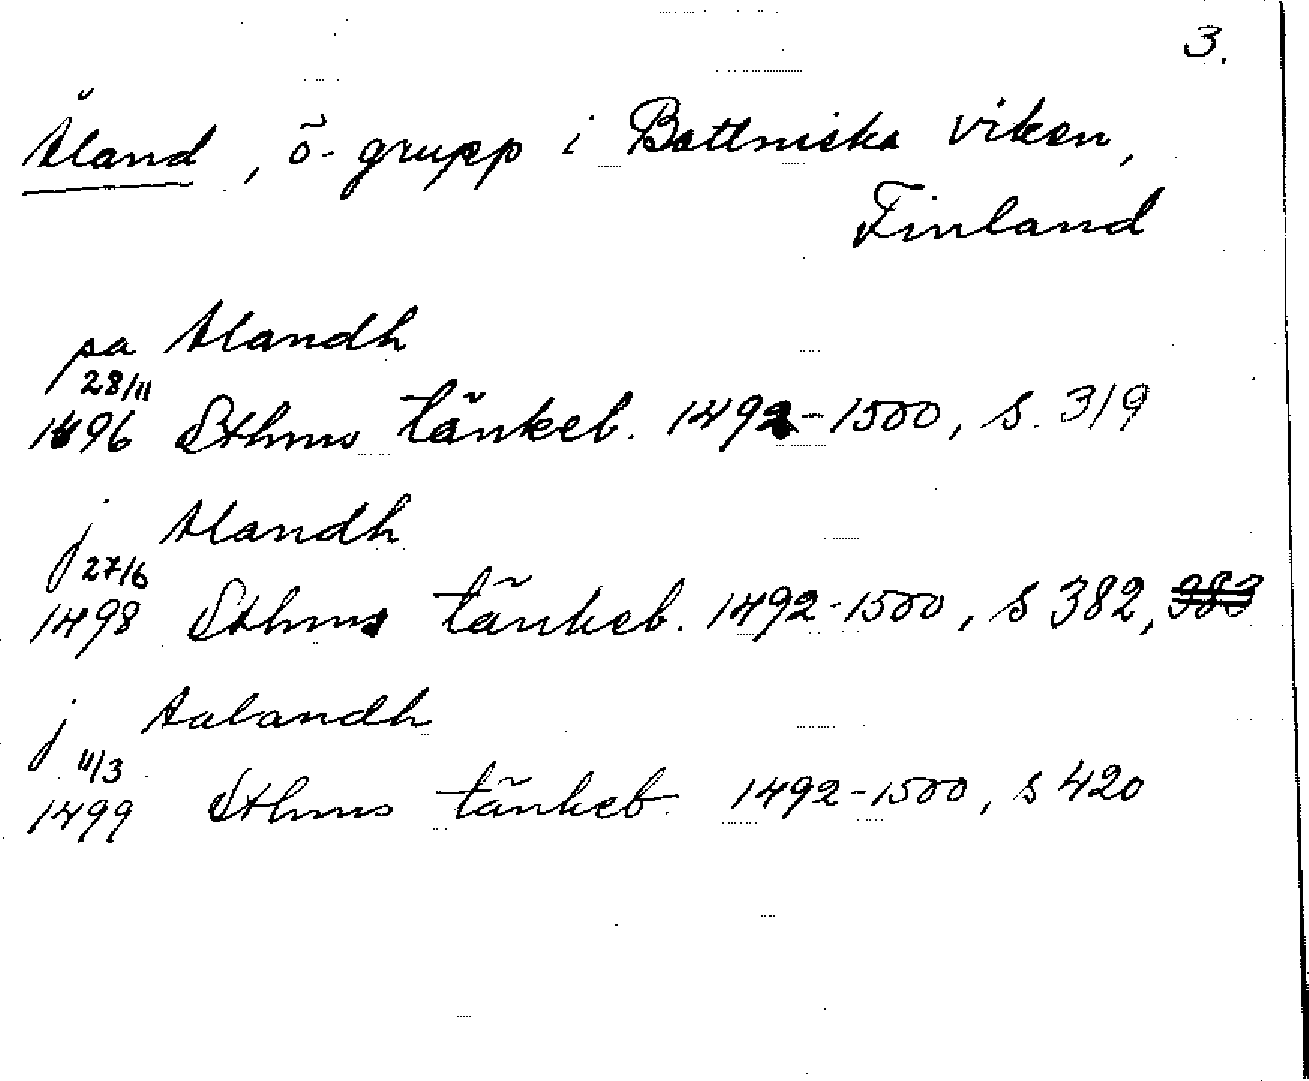 3.
Åland, ö-grupp i Bottniska viken,
Finland
pa Alandh
28/11
1496 Sthms tänkeb. 1492-1500, s. 319
j Alandh
27/6
1498 Sthms tänkeb. 1492-1500, s 382, 383
j Aalandh
11/3
1499 Sthms tänkeb 1492-1500, s 420